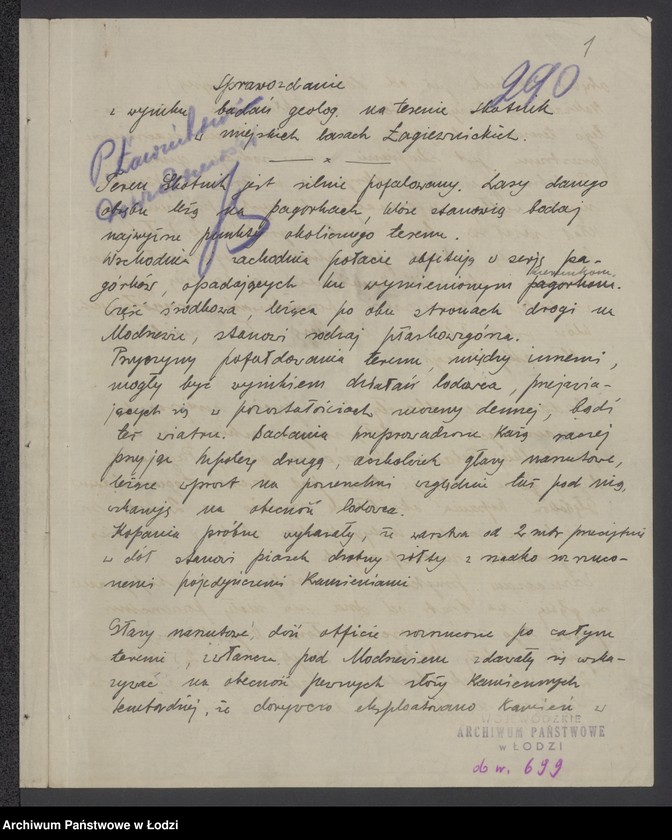 1
290
Sprawozdanie
z wyniku badań geolog. na terenie Skotnik
w miejskich lasach Łagiewnickich.
Teren Skotnik jest silnie pofalowany. Lasy danego
obrębu leżą na pagórkach, które stanowią bodaj
najwyższe punkty okolicznego terenu.
Wschodnia i zachodnia połacie obfitują w serię pa-
górków, opadających ku wymienionym pagórkom.
Część środkowa, leżąca po obu stronach drogi na
Modrzewie, stanowi rodzaj płaskowzgórza.
Przyczyny pofałdowania terenu, między innemi,
mogły być wynikiem działań lodowca, przejawia-
jących się w pozostałościach moreny dennej, bądź
też wiatru. Badania przeprowadzone każą raczej
przyjąć hipotezę drugą, aczkolwiek głazy narzutowe,
leżące wprost na powierzchni względnie tuż pod nią,
wskazują na obecność lodowca.
Kopania próbne wykazały, że warstwa od 2 mtr przeciętnie
w dół stanowi piasek drobny żółty z rzadko rozrzuco-
nemi pojedyńczemi kamieniami
Głazy narzutowe, dość obficie rozrzucone po całym
terenie, zwłaszcza pod Modrzewiem zdawały się wska-
zywać na obecność pewnych złóż kamiennych
tembardziej, że dorywczo eksploatowano kamień w
WOJEWÓDZKIE
ARCHIWUM PAŃSTWOWE
w ŁODZI
do nr. 699
Archiwum Państwowe w Łodzi